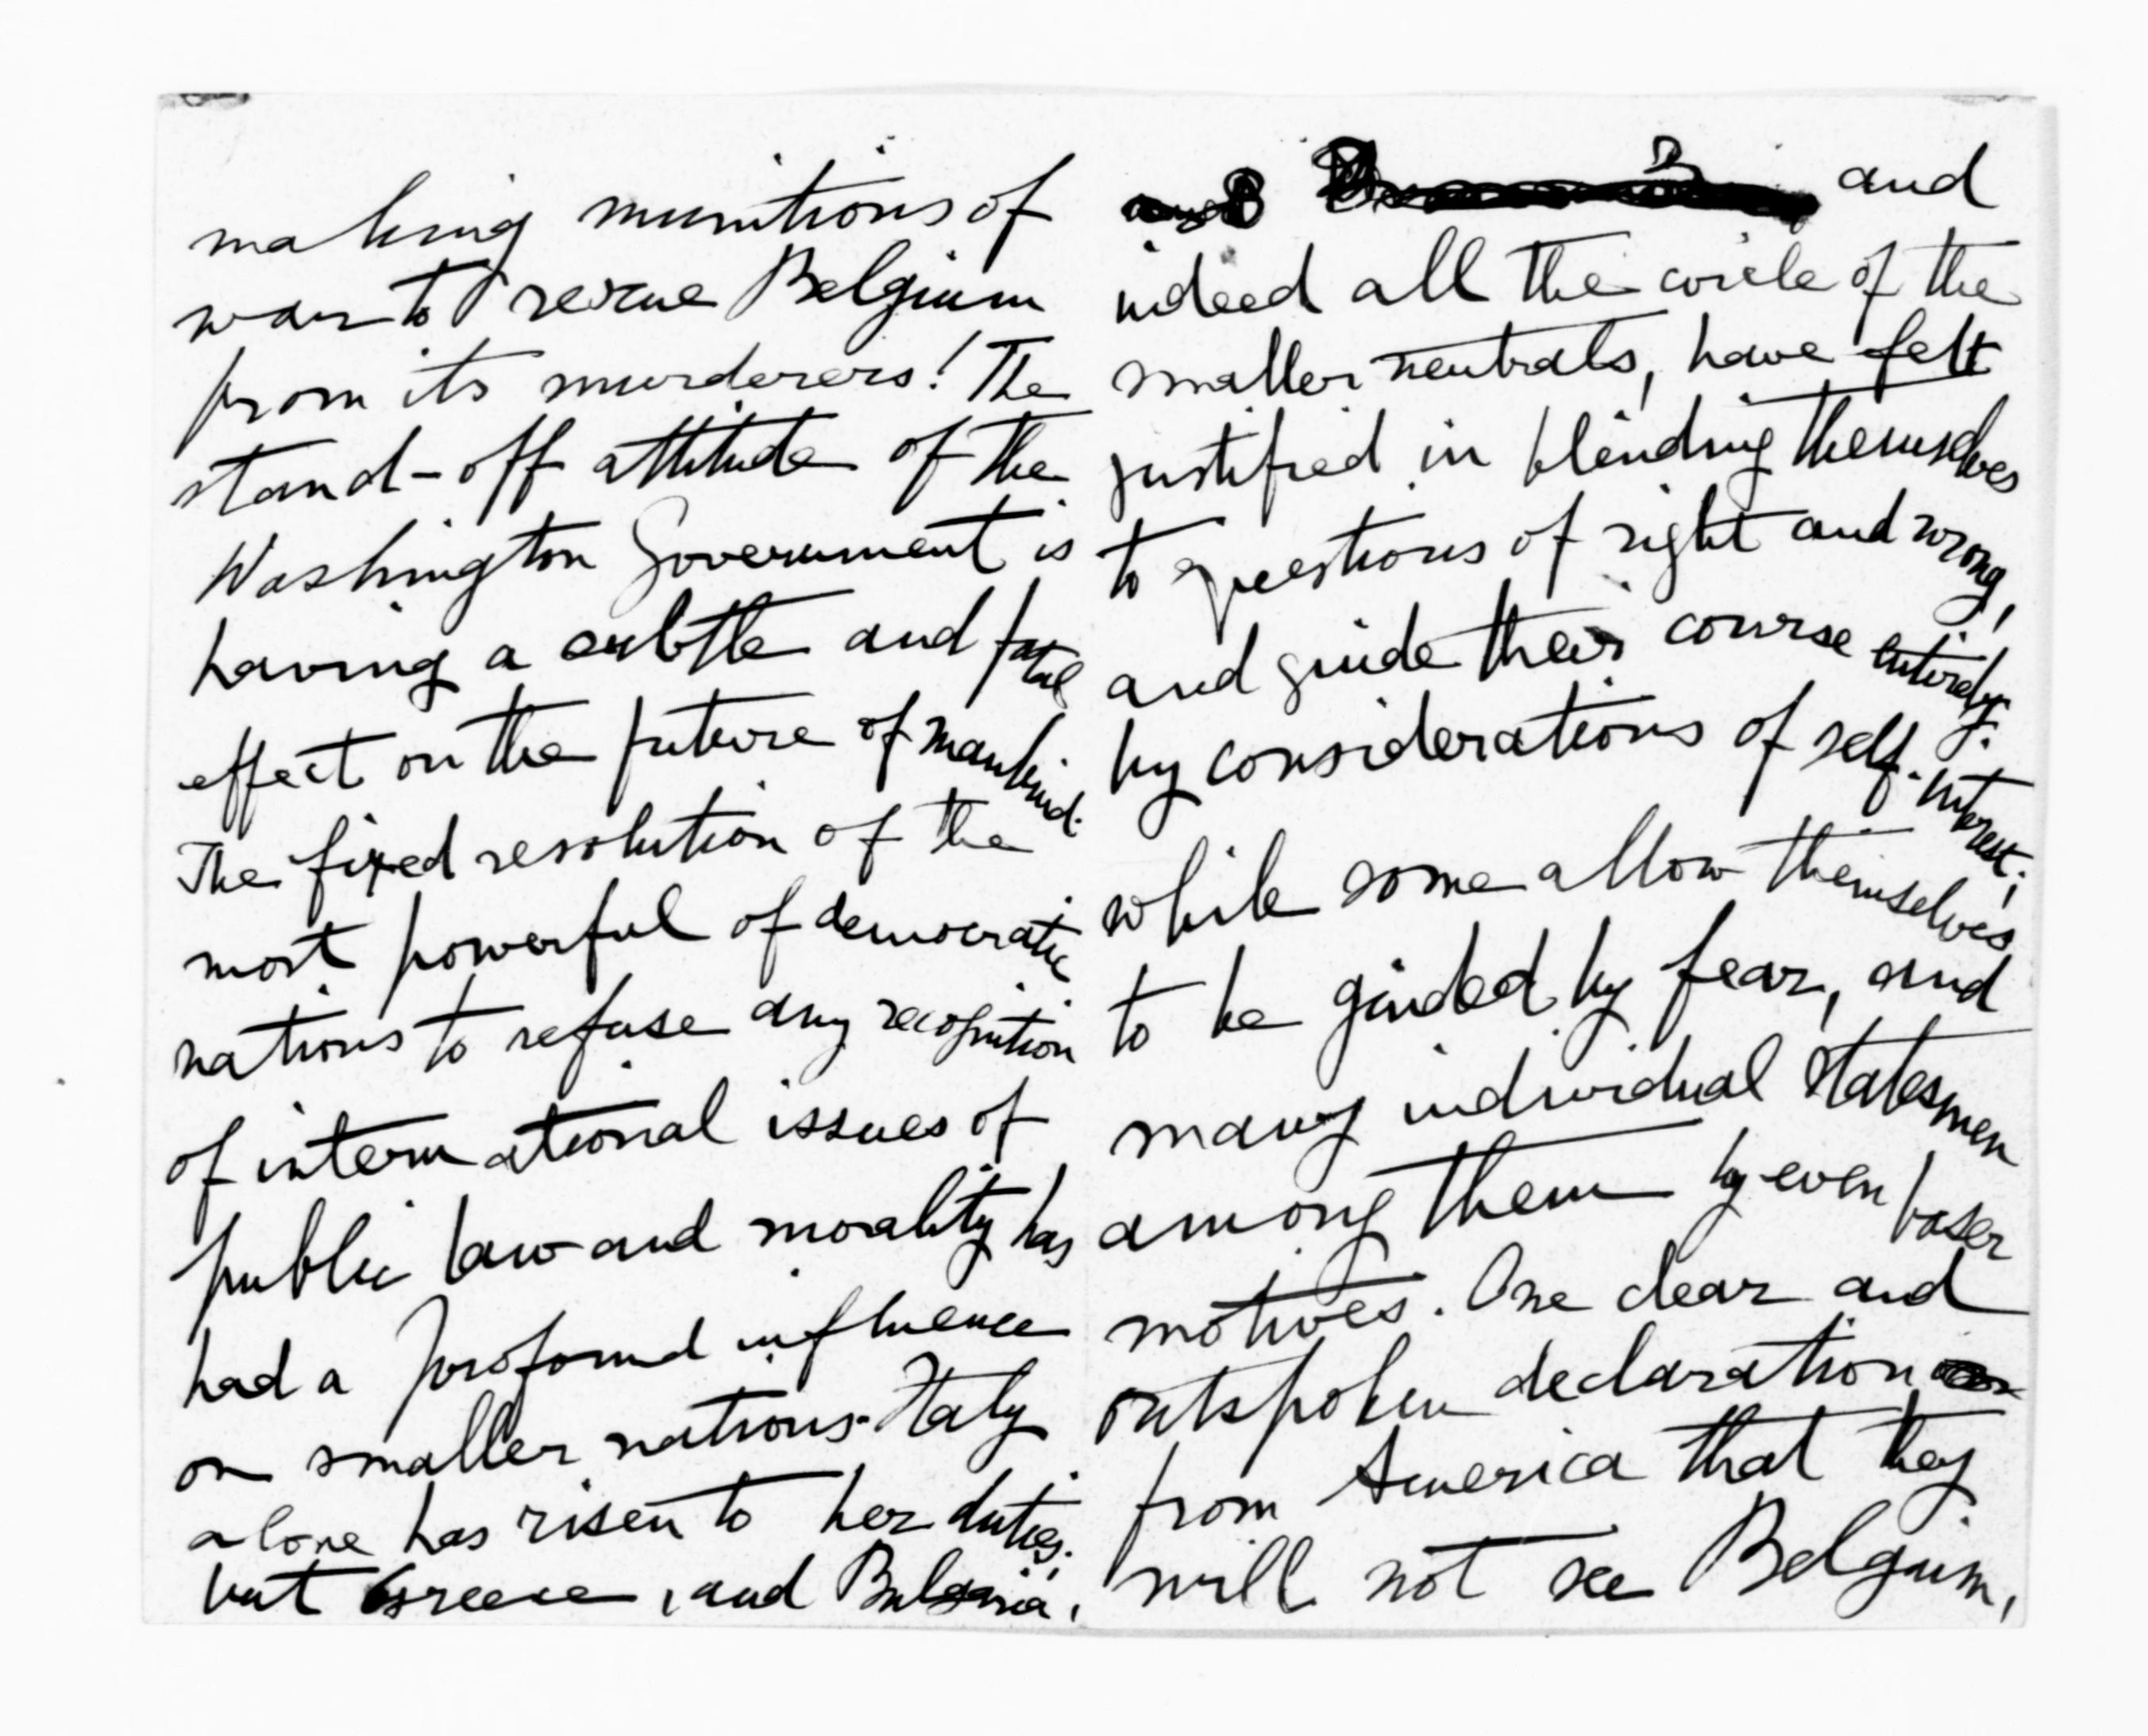 making munitions of
war to rescue Belgium
from its murderers! The
stand-off attitude of the
Washington Government is
having a subtle and fatal
effect on the future of mankind.
The fixed resolution of the
most powerful of democratic
nations to refuse any recognition
of international issues of
public law and morality has
had a profound influence
on smaller nations. Italy
alone has risen to her duties.
but Greece, and Bulgaria,
and
indeed all the circle of the
smaller neutrals, have felt
justified in blinding themselves
to questions of right and wrong,
and guide their course entirely
by considerations of self-interest;
while some allow themselves
to be guided by fear, and
many individual statesmen
among them by even baser
motives. One clear and
outspoken declaration
from America that they
will not see Belgium,